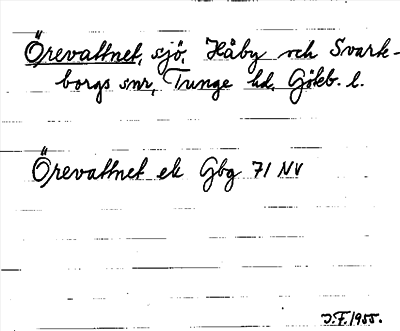 Örevattnet, sjö, Håby och Svark-
borgs snr, Tunge hd, Göteb. l.
Örevattnet ek Gbg 71 NV
J.F. 1955.